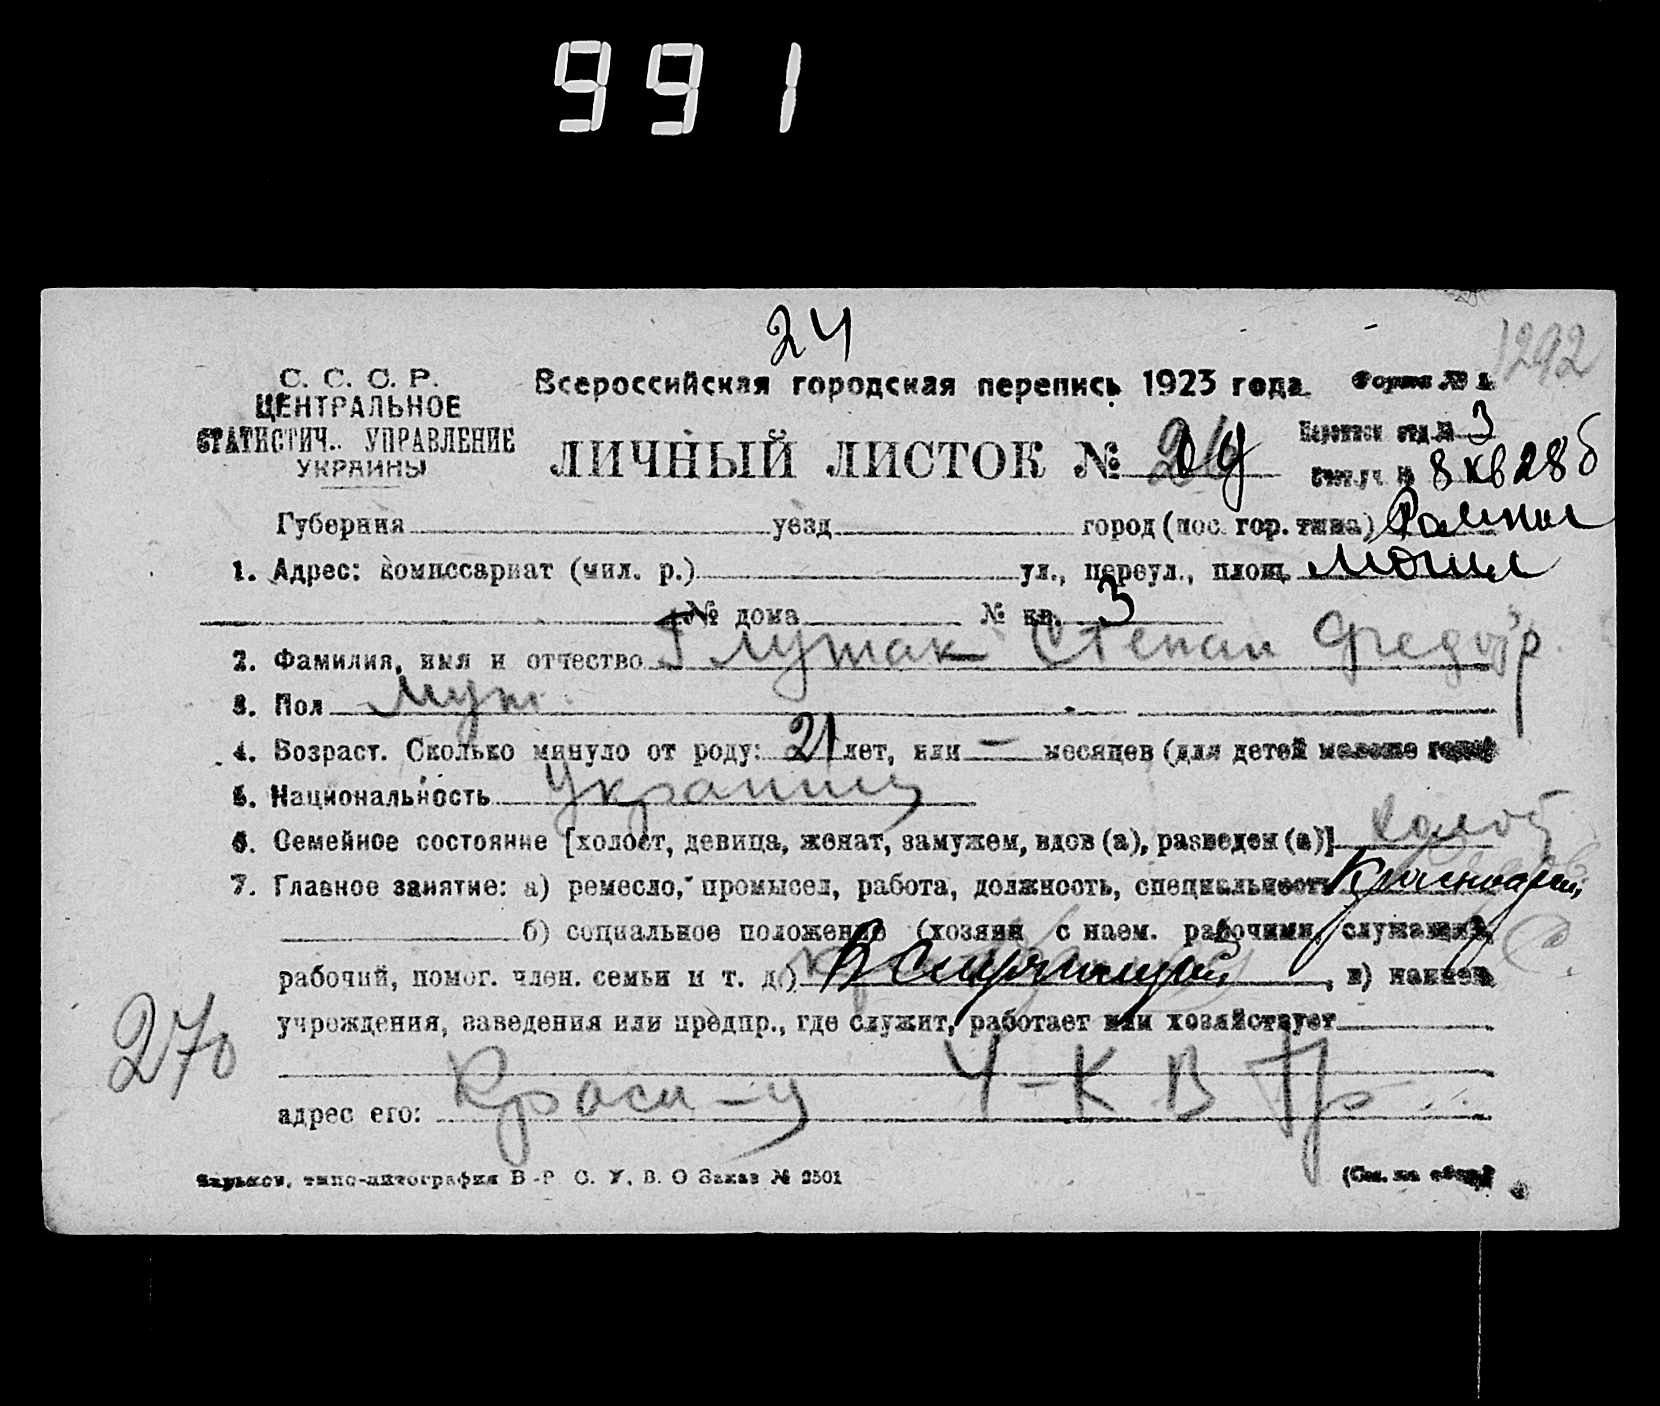 991
24
1292
С. С. С. Р.
ЦЕНТРАЛЬНОЕ
СТАТИСТИЧ.. УПРАВЛЕНИЕ
УКРАИНЫ
Всероссийская городская перепись 1923 года. Форма № 1
ЛИЧНЫЙ ЛИСТОК №
Переписн отд. № 3
Счетн. уч. № 8 кв 28б
Губерния уезд город (пос. гор. типа)
1. Адрес: комиссариат (мил. р.) ул., переул., площ.
№ дома № кв. 3
2. Фамилия, имя и отчество Глушак Степан
3. Пол Муж.
4. Возраст. Сколько минуло от роду: 21 лет, или — месяцев (для детей моложе года)
5. Национальность Украинец
6. Семейное состояние [холост, девица, женат, замужем, вдов (а), разведен (а)] Холост
7. Главное занятие: а) ремесло, промысел, работа, должность, специальность Красноарм.
б) социальное положение (хозяин с наем. рабочими, служащий,
рабочий, помог. член. семьи и т. д.) Служащий, в) наимен.
учреждения, заведения или предпр., где служит, работает или хозяйствует
270
адрес его:
Харьков, типо-литография В-Р С. У. В. О Заказ № 2501 (См. на обор.)